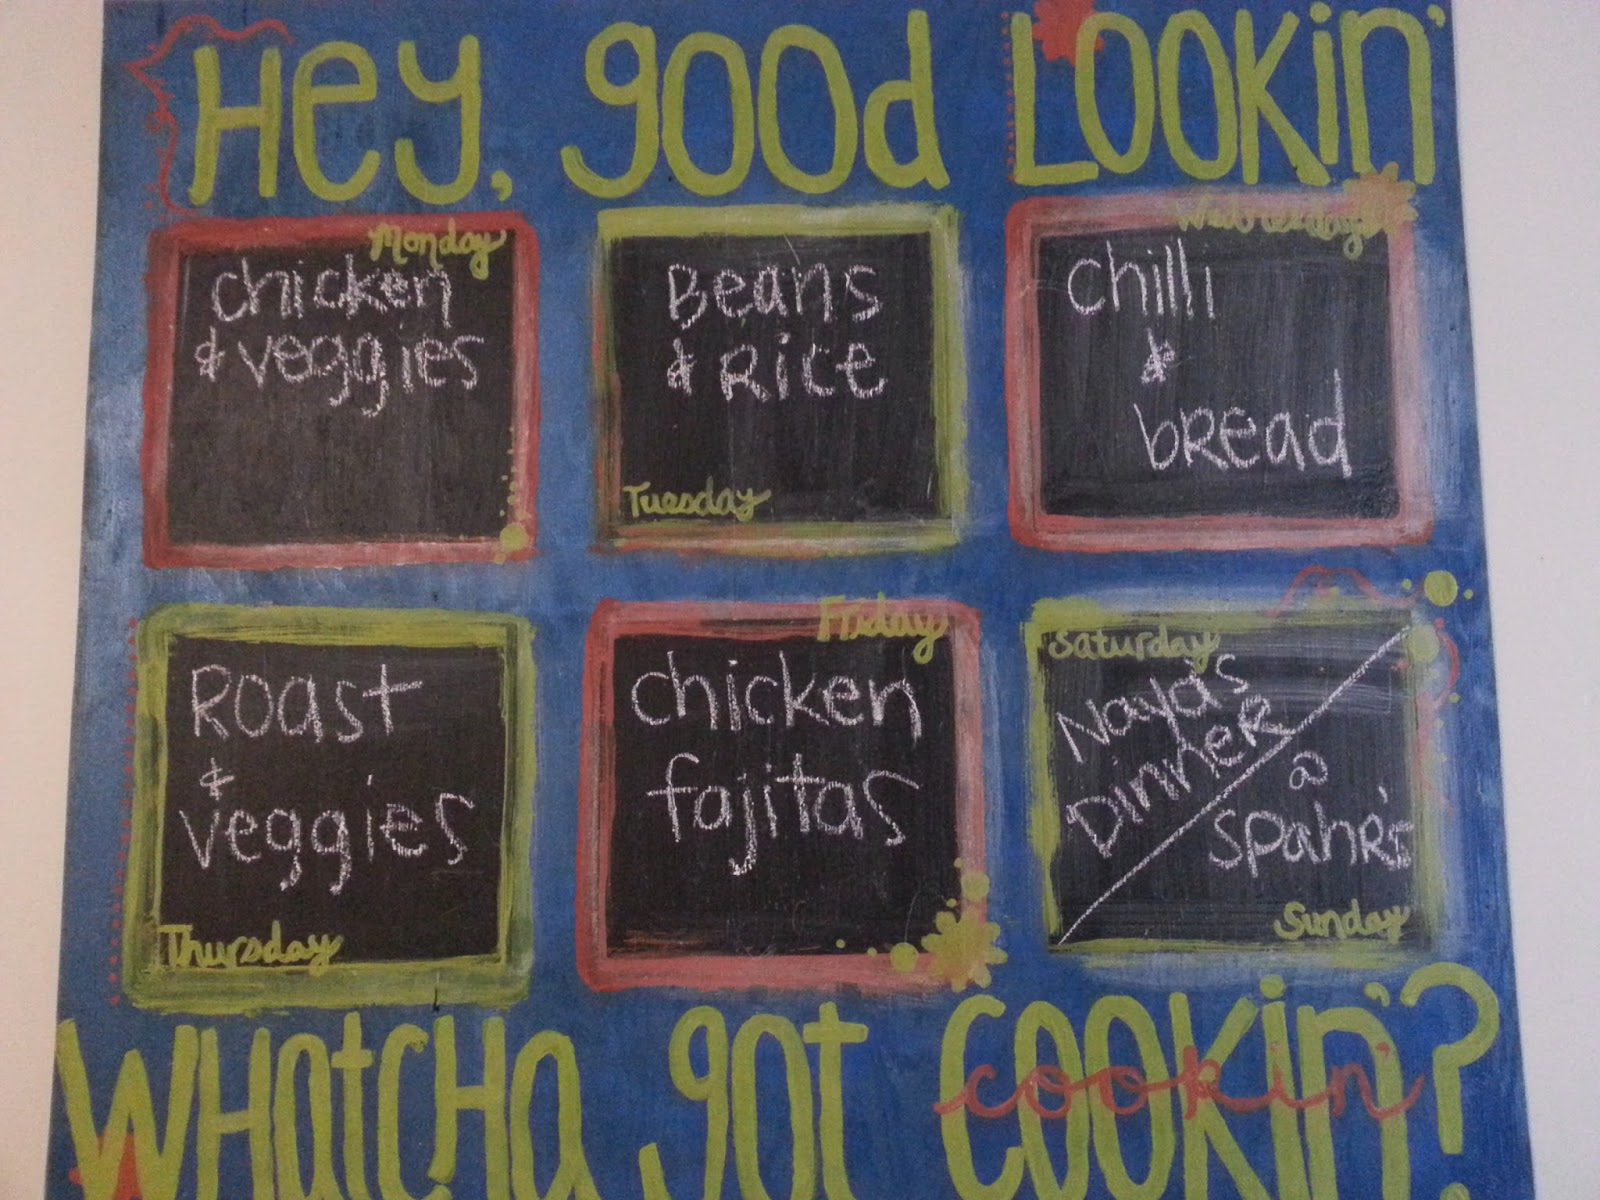 Hey, good Lookin'
Monday
chicken
& veggies
Beans
& Rice
Tuesday
Wednesday
chilli
&
bread
Roast
&
veggies
Thursday
Friday
chicken
fajitas
Saturday
Naya's
Dinner
@
Spahr's
Sunday
Whatcha got cookin'?
cookin'